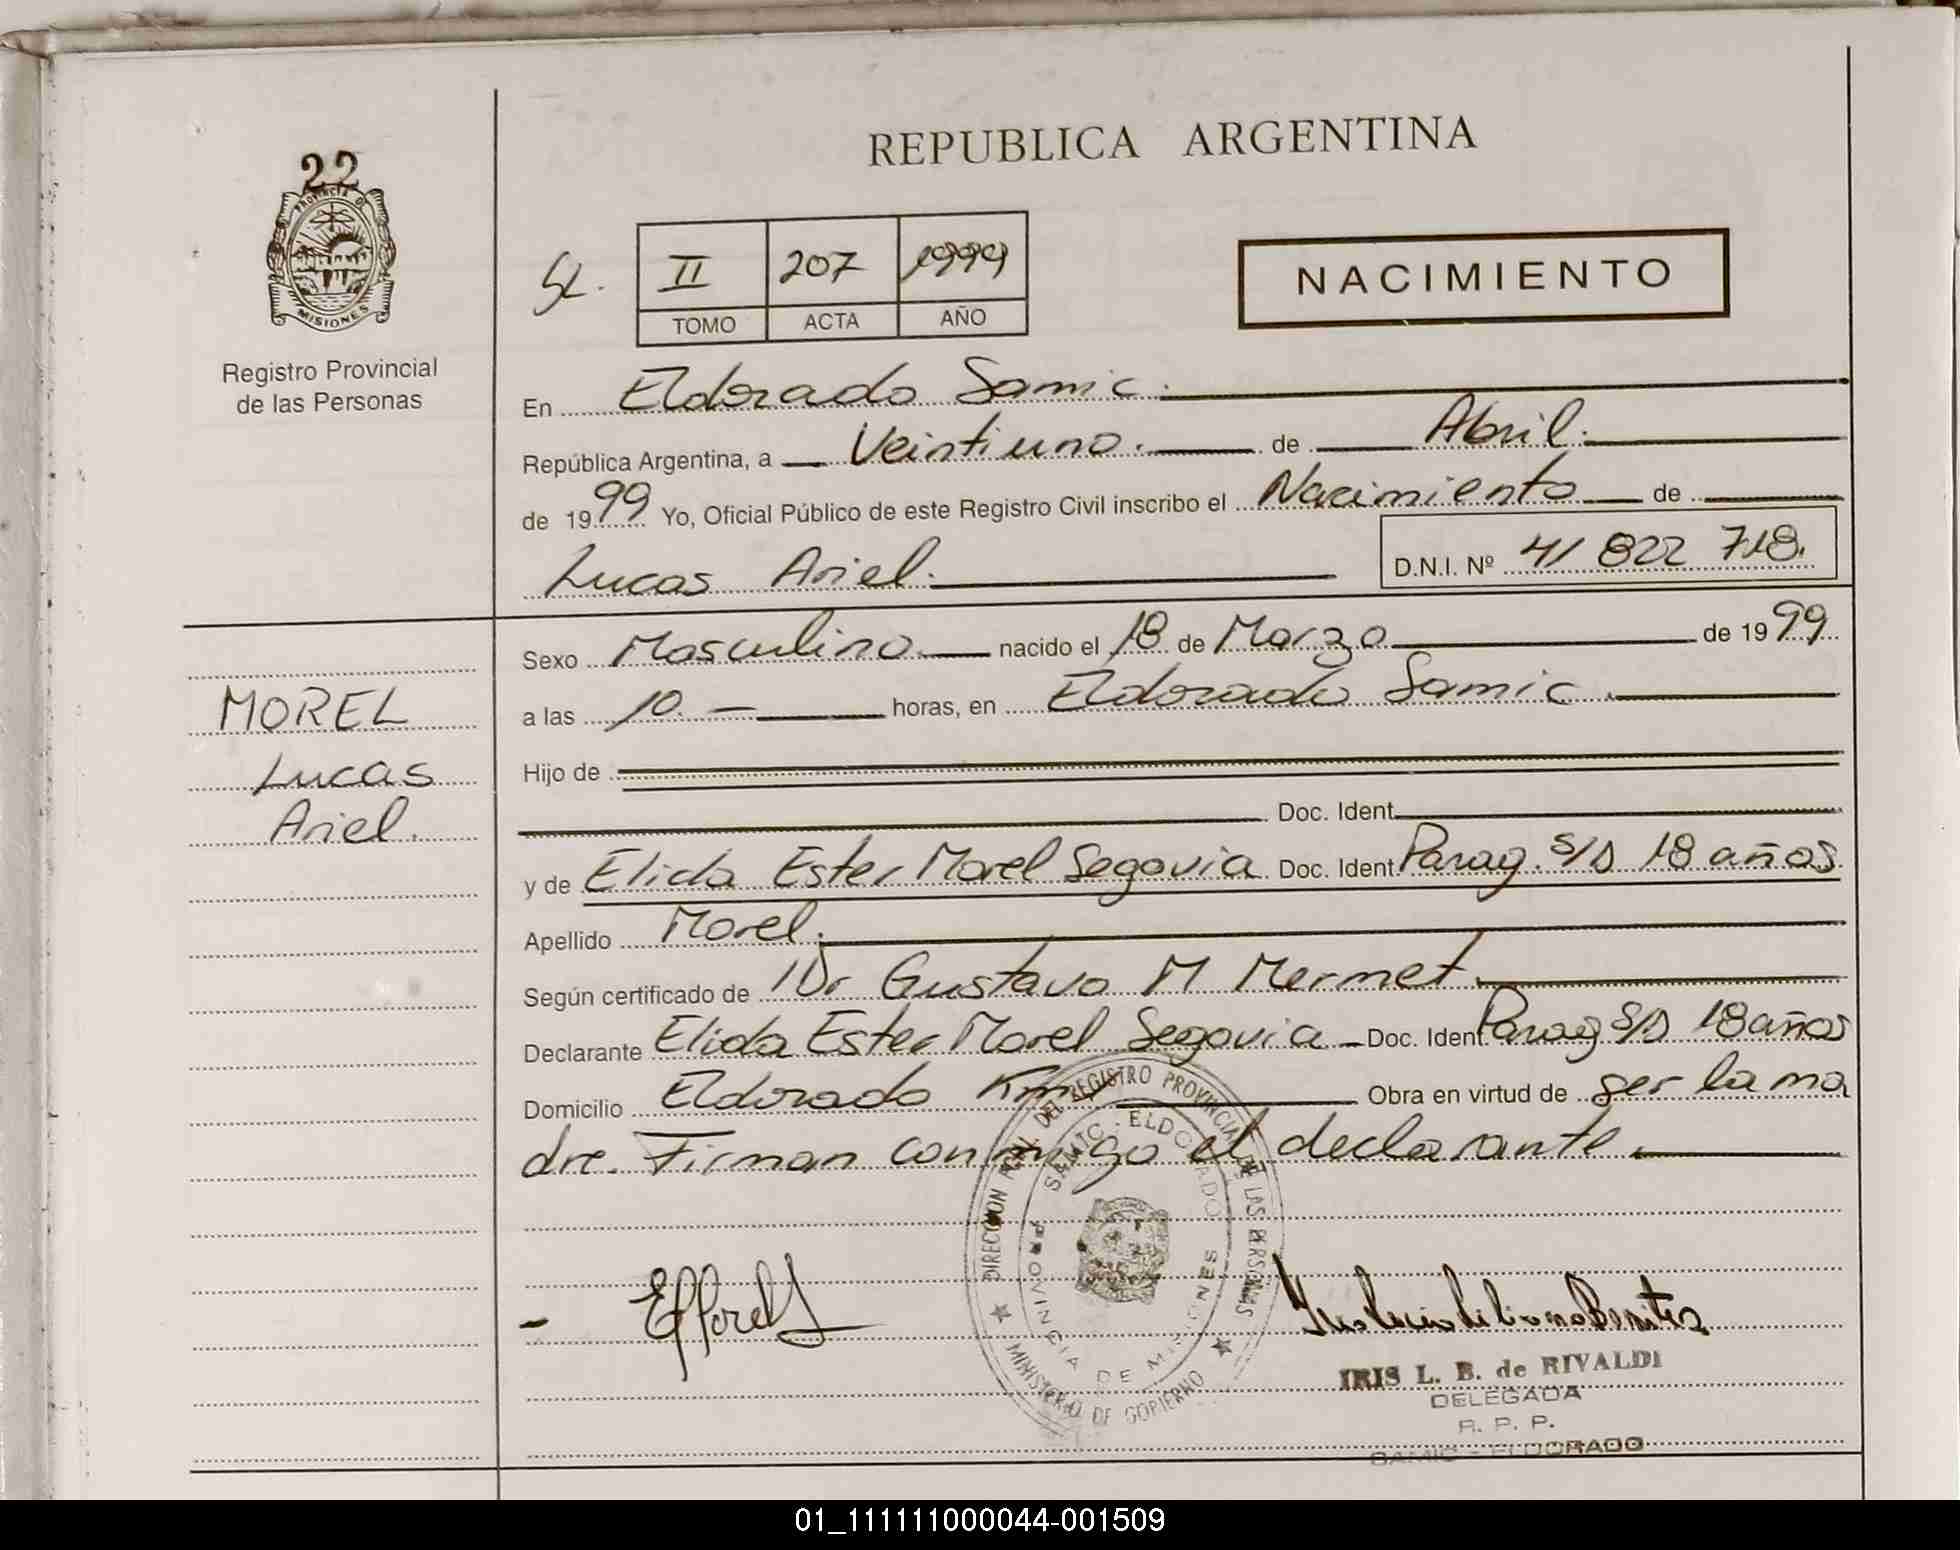 22
PROVINCIA DE
MISIONES
Registro Provincial
de las Personas
REPUBLICA ARGENTINA
II 207 1999
TOMO ACTA AÑO
NACIMIENTO
En Eldorado Samic.
República Argentina, a Veintiuno. de Abril.
de 1999 Yo, Oficial Público de este Registro Civil inscribo el Nacimiento de
Lucas Ariel. D.N.I. Nº 41 822 718.
Sexo Masculino nacido el 18 de Marzo de 1999
a las 10. horas, en Eldorado Samic.
Hijo de
Doc. Ident.
y de Elida Ester Morel Segovia Doc. Ident. Parag. S/D 18 años
Apellido Morel.
Según certificado de Dr Gustavo M Mermet.
Declarante Elida Ester Morel Segovia Doc. Ident. Parag S/D 18 años
Domicilio Eldorado Km Obra en virtud de ser la ma
dre. Firman conmigo el declarante
MOREL
Lucas
Ariel.
DIRECCION DEL REGISTRO PROVINCIAL DE LAS PERSONAS
MINISTERIO DE GOBIERNO
SAMIC - ELDORADO
PROVINCIA DE MISIONES
IRIS L. B. de RIVALDI
DELEGADA
R. P. P.
SAMIC - ELDORADO
01_111111000044-001509